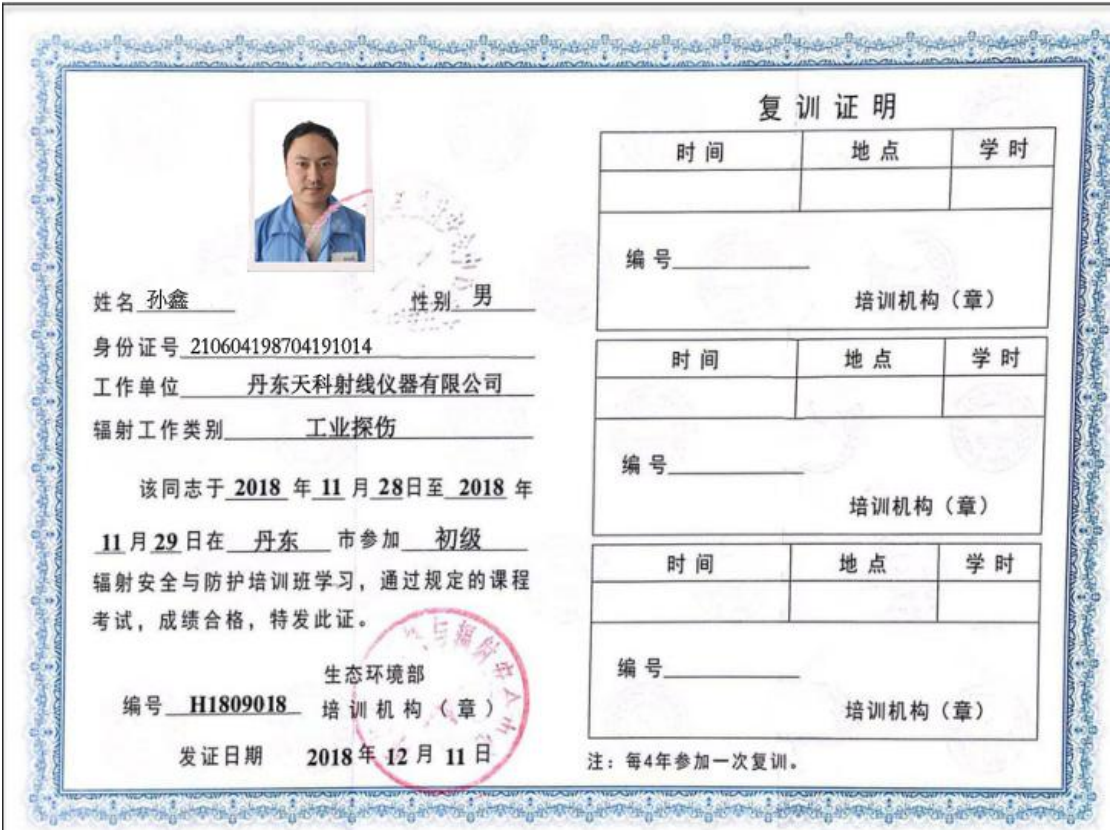 姓名 孙鑫 性别 男
身份证号 210604198704191014
工作单位 丹东天科射线仪器有限公司
辐射工作类别 工业探伤
该同志于 2018 年 11 月 28 日至 2018 年
11 月 29 日在 丹东 市参加 初级
辐射安全与防护培训班学习，通过规定的课程
考试，成绩合格，特发此证。
生态环境部
编号 H1809018 培训机构（章）
发证日期 2018 年 12 月 11 日
复训证明
时间 地点 学时
编号
培训机构（章）
时间 地点 学时
编号
培训机构（章）
时间 地点 学时
编号
培训机构（章）
注：每4年参加一次复训。